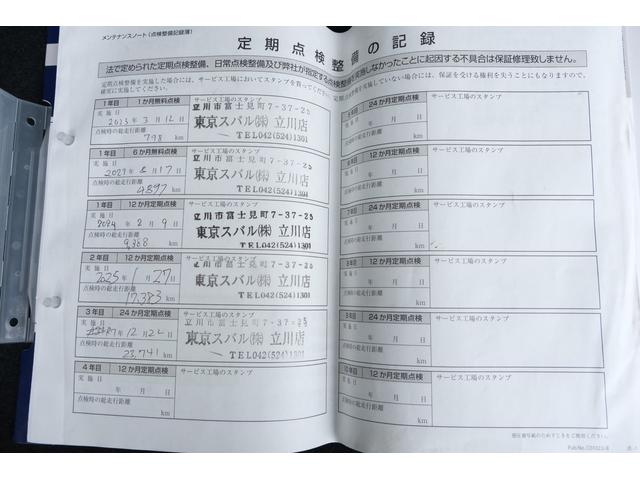 メンテナンスノート(点検整備記録簿)
定期点検整備の記録
法で定められた定期点検整備、日常点検整備及び弊社が指定する点検整備を実施しなかったことに起因する不具合は保証修理致しません。
定期点検整備を実施した場合には、サービス工場においてスタンプを貰ってください。
確実に実施してください。
実施していない場合には、保証を受ける権利を失うことにもなりますので、
1年目 1か月無料点検 サービス工場のスタンプ
実施日 2023年3月12日
点検時の総走行距離
798 km
立川市富士見町7-37-25
東京スバル㈱ 立川店
TEL042(524)1301
1年目 6か月無料点検 サービス工場のスタンプ
実施日
8月17日
点検時の総走行距離
4897 km
立川市富士見町7-37-25
東京スバル㈱ 立川店
TEL042(524)1301
1年目 12か月定期点検 サービス工場のスタンプ
実施日 2024年2月9日
点検時の総走行距離
9,388 km
立川市富士見町7-37-25
東京スバル㈱ 立川店
TEL042(524)1301
2年目 12か月定期点検 サービス工場のスタンプ
実施日
2025年1月27日
点検時の総走行距離
17,383 km
立川市富士見町7-37-25
東京スバル㈱ 立川店
TEL042(524)1301
3年目 24か月定期点検 サービス工場のスタンプ
実施日
R7年12月22日
点検時の総走行距離
23,741 km
立川市富士見町7-37-25
東京スバル㈱ 立川店
TEL042(524)1301
4年目 12か月定期点検 サービス工場のスタンプ
実施日
年 月 日
点検時の総走行距離
km
24か月定期点検 サービス工場のスタンプ
年 月 日
総走行距離
km
12か月定期点検 サービス工場のスタンプ
年 月 日
総走行距離
km
7年目 24か月定期点検 サービス工場のスタンプ
実施日
年 月 日
点検時の総走行距離
km
12か月定期点検 サービス工場のスタンプ
実施日
年 月 日
点検時の総走行距離
km
24か月定期点検 サービス工場のスタンプ
実施日
年 月 日
点検時の総走行距離
km
10年目 12か月定期点検 サービス工場のスタンプ
実施日
年 月 日
点検時の総走行距離
km